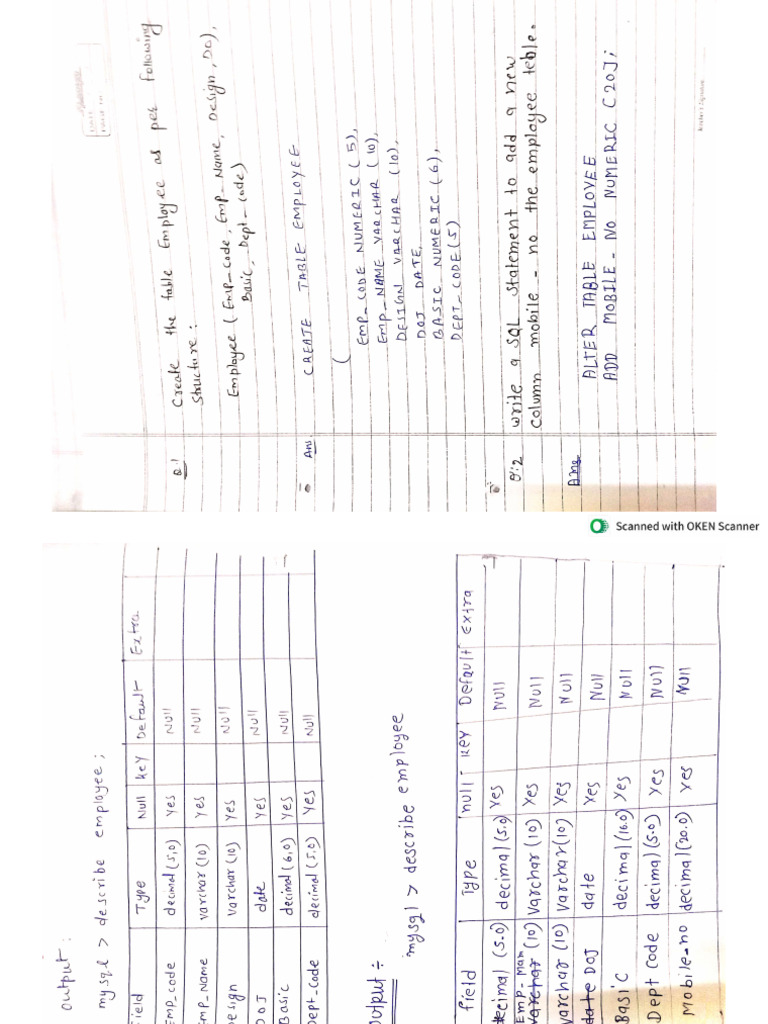 Q.1 Create the table Employee as per following
Structure :
Employee ( Emp_code, Emp_Name, Design, DO),
Basic, Dept_code)
Ans. CREATE TABLE EMPLOYEE
(
EMP_CODE NUMERIC (5),
EMP_NAME VARCHAR (10),
DESIGN VARCHAR (10),
DOJ DATE,
BASIC NUMERIC (6),
DEPT_CODE(5)
Q:2 write a SQL statement to add a new
column mobile_no the employee teble.
Ans ALTER TABLE EMPLOYEE
ADD MOBILE_NO NUMERIC (20J;
Scanned with OKEN Scanner
output :
mysql > describe employee ;
Field Type Null key Default Extra
EMP_code decimal (5,0) Yes Null
EMP_Name varchar (10) Yes Null
Design varchar (10) Yes Null
DOJ date Yes Null
Basic decimal (6,0) Yes Null
Dept_Code decimal (5,0) Yes Null
Output ÷
mysql > describe employee
field Type null key Default Extra
decimal (5.0) decimal (5.0) Yes Null
Emp-Nam varchar (10) varchar (10) Yes Null
varchar (10) varchar(10) Yes Null
date DOJ date Yes Null
Basic decimal (16.0) Yes Null
Dept code decimal (5.0) Yes Null
Mobile-no decimal (20.0) Yes Null